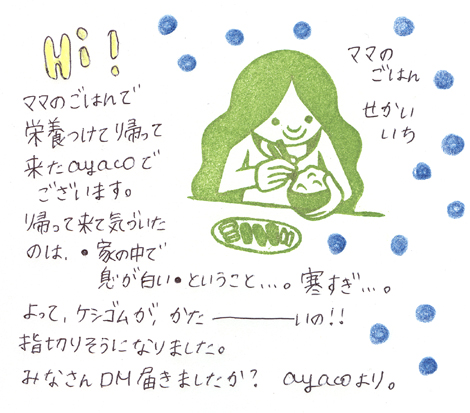 Hi!
ママの
ごはん
せかい
いち
ママのごはんで
栄養つけて帰って
来たayacoで
ございます。
帰って来て気づいた
のは、・家の中で
息が白い・ということ…。寒すぎ…。
よって、ケシゴムが、かた―――いの!!
指切りそうになりました。
みなさんDM届きましたか? ayacoより。